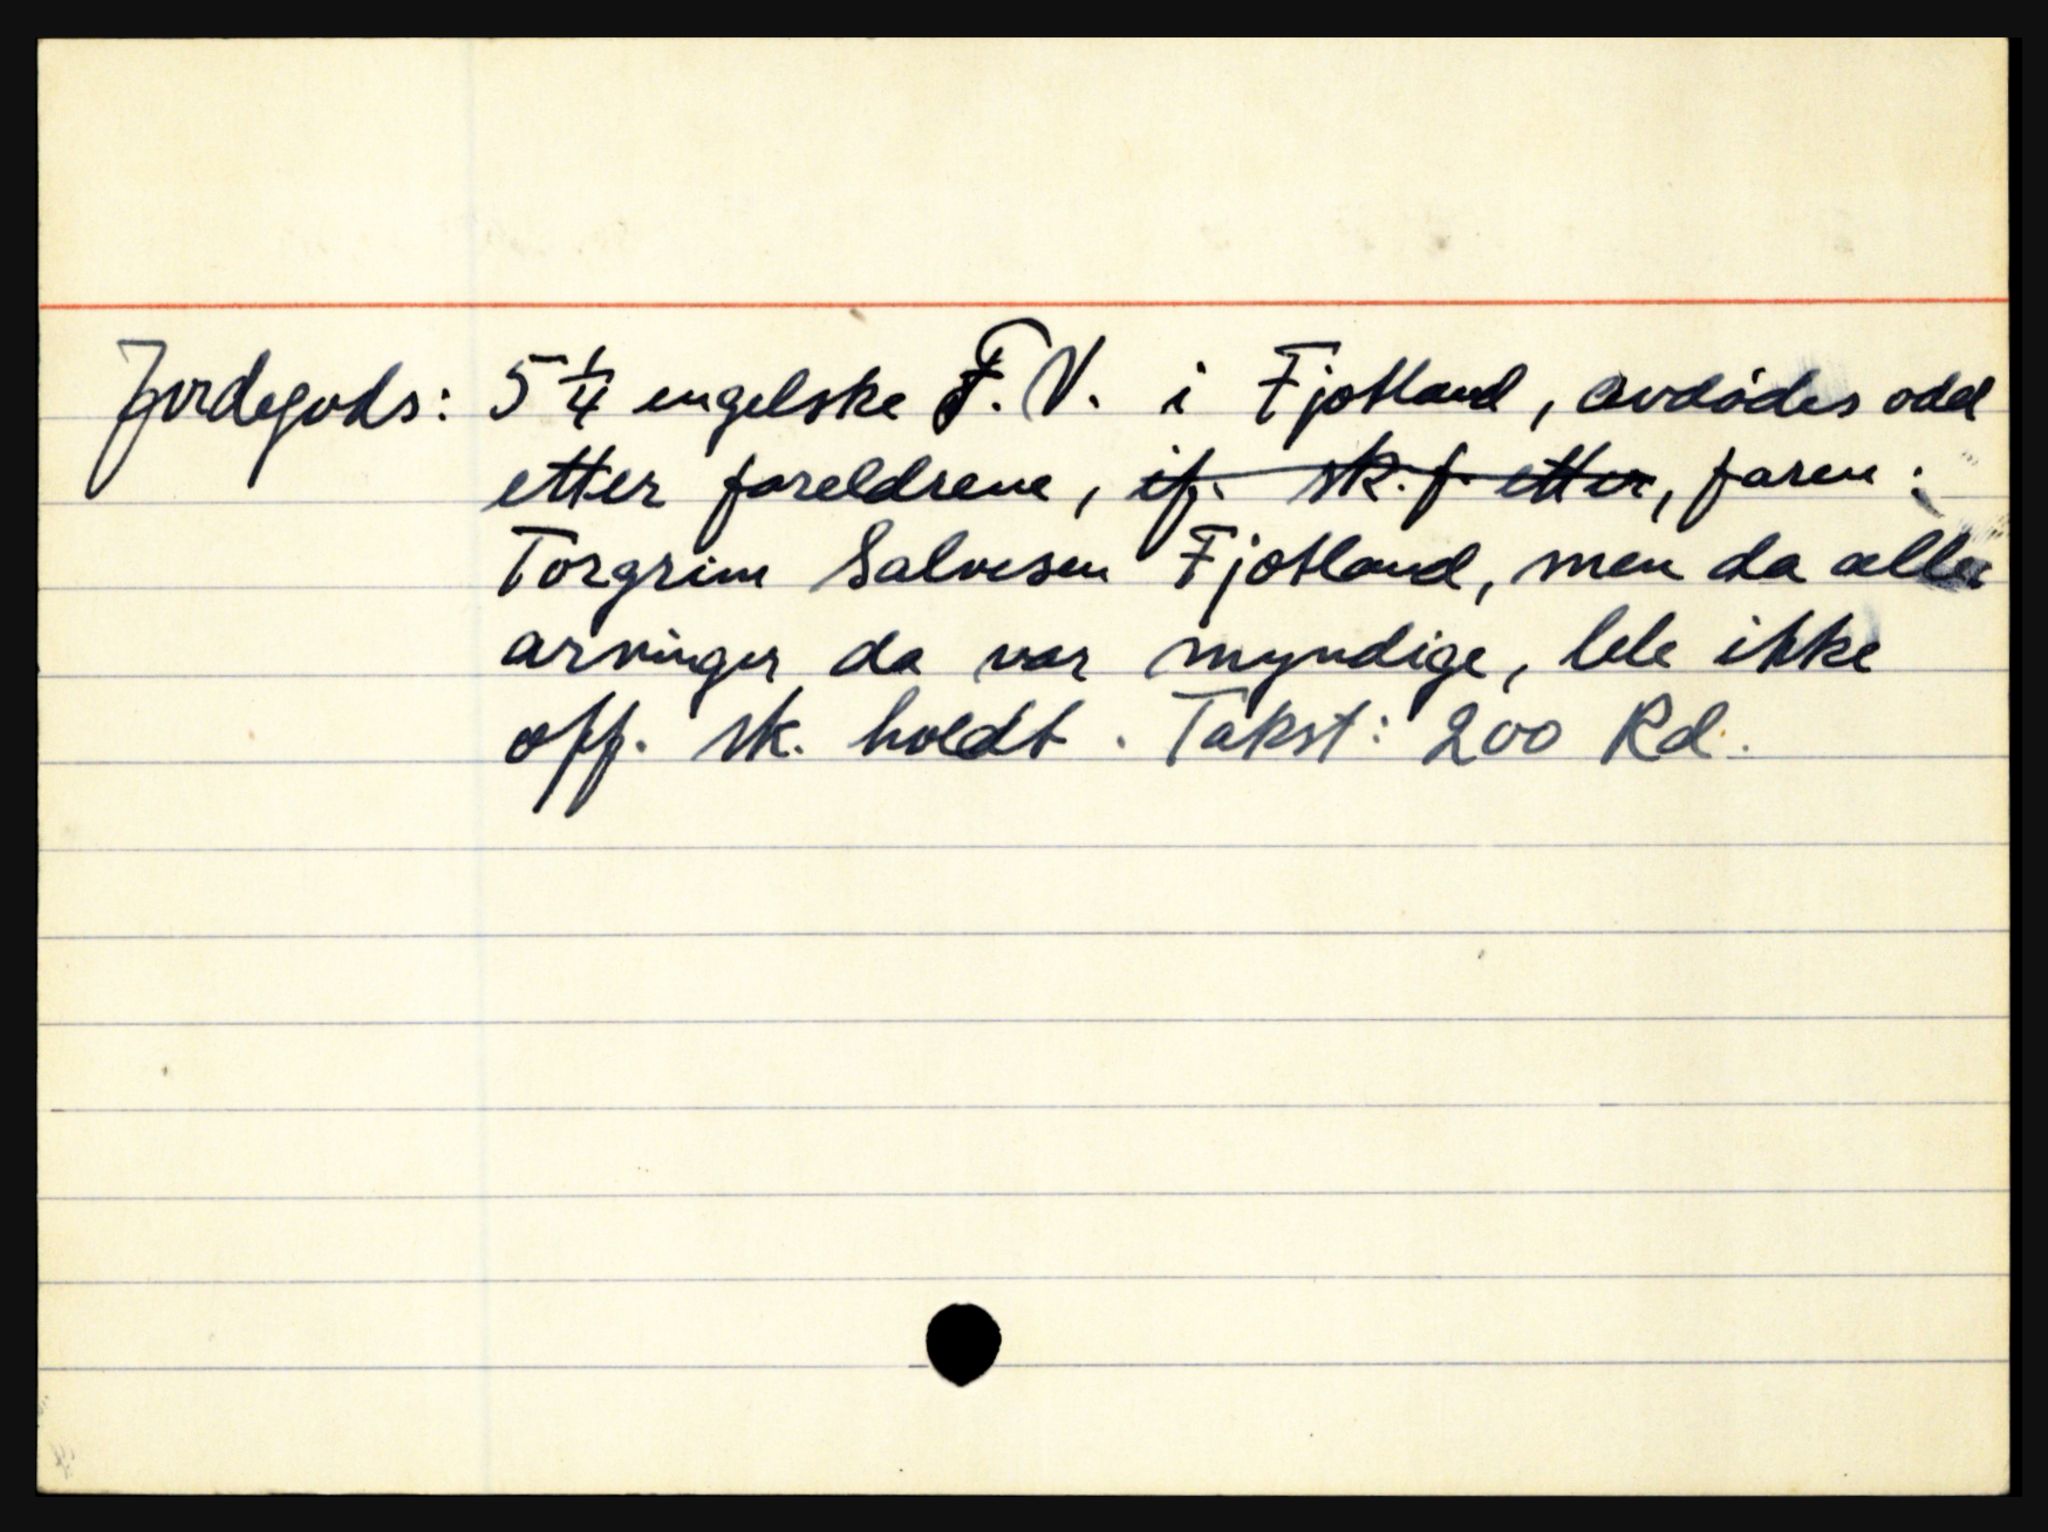 Jordegods: 5 1/4 engelske F.V. i Fjotland, avdødes odel
etter foreldrene, ifj. sk.f. etter, faren:
Torgrim Salvesen Fjotland, men da alle
arvinger da var myndige, ble ikke
off. sk. holdt. Takst: 200 Rd.